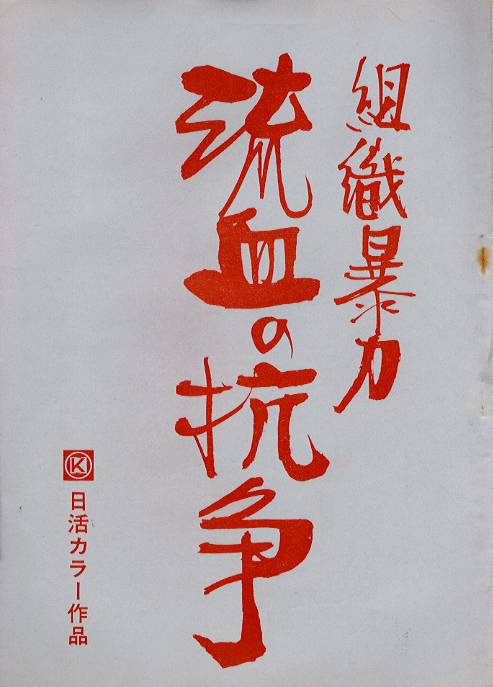 組織暴力
流血の抗争
K
日活カラー作品